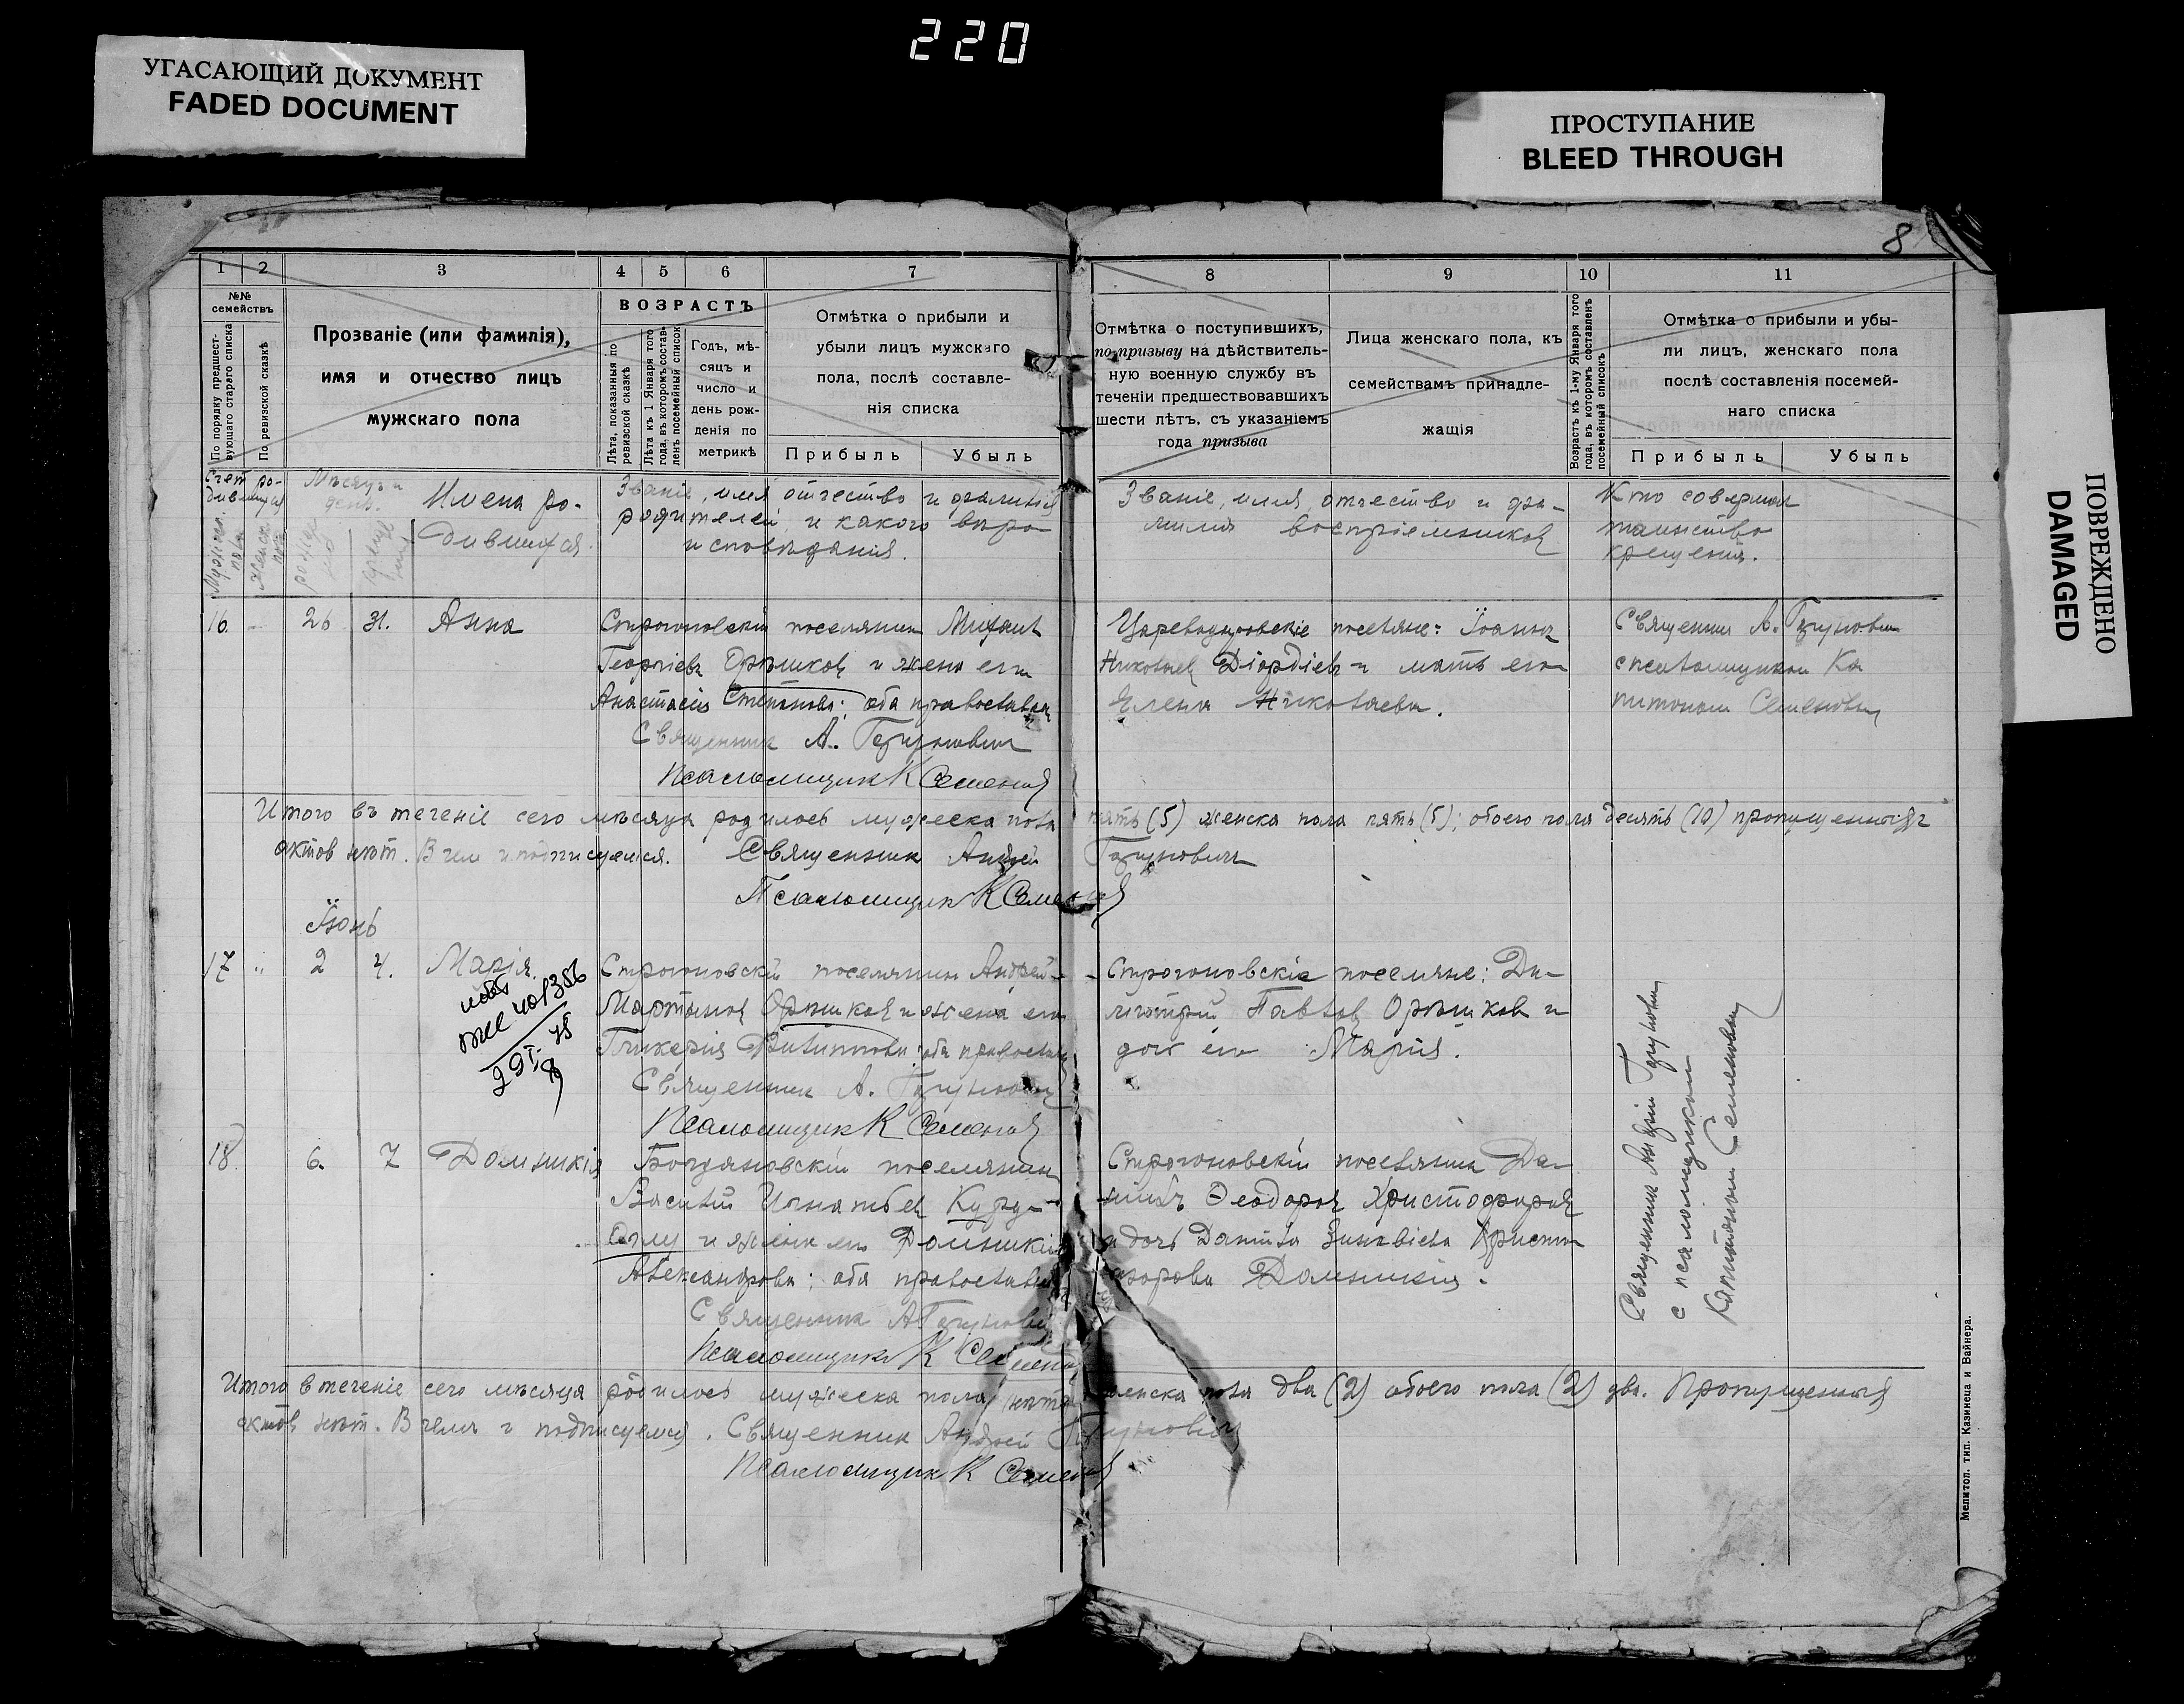 220
УГАСАЮЩИЙ ДОКУМЕНТ
FADED DOCUMENT
ПРОСТУПАНИЕ
BLEED THROUGH
ПОВРЕЖДЕНО
DAMAGED
8
1 2 3 4 5 6 7
№№ семействъ
По порядку предшествующаго стараго списка
По ревизской сказкѣ
Прозваніе (или фамилія),
имя и отчество лицъ
мужскаго пола
ВОЗРАСТЪ
Лѣта, показанныя по ревизской сказкѣ
Лѣта къ 1 Января того года, въ которомъ составленъ посемейный список
Годъ, мѣ-
сяцъ и
число и
день рож-
денія по
метрикѣ
Отмѣтка о прибыли и
убыли лицъ мужскаго
пола, послѣ составле-
нія списка
Прибыль Убыль
8 9 10 11
Отмѣтка о поступившихъ,
по призыву на дѣйствитель-
ную военную службу въ
теченіи предшествовавшихъ
шести лѣтъ, съ указаніемъ
года призыва
Лица женскаго пола, къ
семействамъ принадле-
жащія
Возрастъ къ 1-му Января того года, въ которомъ составленъ посемейный списокъ
Отмѣтка о прибыли и убы-
ли лицъ, женскаго пола
послѣ составленія посемей-
наго списка
Прибыль Убыль
Счет ро-
дившихся
Мѣсяцъ и
день.
Имена ро-
дившихся.
Званіе, имя отчество и фамилія
родителей, и какого вѣро-
исповѣданія.
Званіе, имя, отчество и фа-
милия воспріемников
Кто совершал
таинство
крещения.
16. 26 31. Анна
Строгоновскій поселянин Михаил
Георгіев Орѣшков и жена его
Анастасія Степанова; оба православн
Священник А.
Псаломщик К Семенов
поселяне: Іоанн
Николаев Діордіев и мать его
Елена Николаева.
Священник А.
с псаломщиком Ка
питоном Семеновым
Итого въ теченіе сего мѣсяца родилось мужеска пола пять (5) женска пола пять (5); обоего пола десять (10) пропущенных
актов нѣт. В чем и подписуемся. Священник Андрей
Псаломщик К Семенов
Іюнь
17 2 4. Марія.
Строгоновскій поселянин Андрей
Мартынов Орѣшков и жена его
Гликерія Филиппова: оба православн
Священник А.
Псаломщик К Семенов
Строгоновскіе поселяне: Ди-
митрий Павлов Орѣшков и
доч его Марія.
18 6. 7 Домникія
Богдановскій поселянин
Василій Игнатьев Курд-
Оглу и жена его Домникія
Александрова: оба православн
Священник А
Псаломщик К Семенов
Строгоновскій поселянин Да-
ниилъ Ѳеодоров Христофоров
и доч Даниила Христо
форова Домникія.
Священник Андрей
с псаломщиком
Капитоном Семеновым
Итого в теченіе сего мѣсяца родилось мужеска пола нѣт женска пола два (2) обоего пола (2) два. Пропущенных
актов нѣт. В чем и подписуемся. Священник Андрей
Псаломщик К Семенов
Мелитоп. тип. Казинеца и Вайнера.